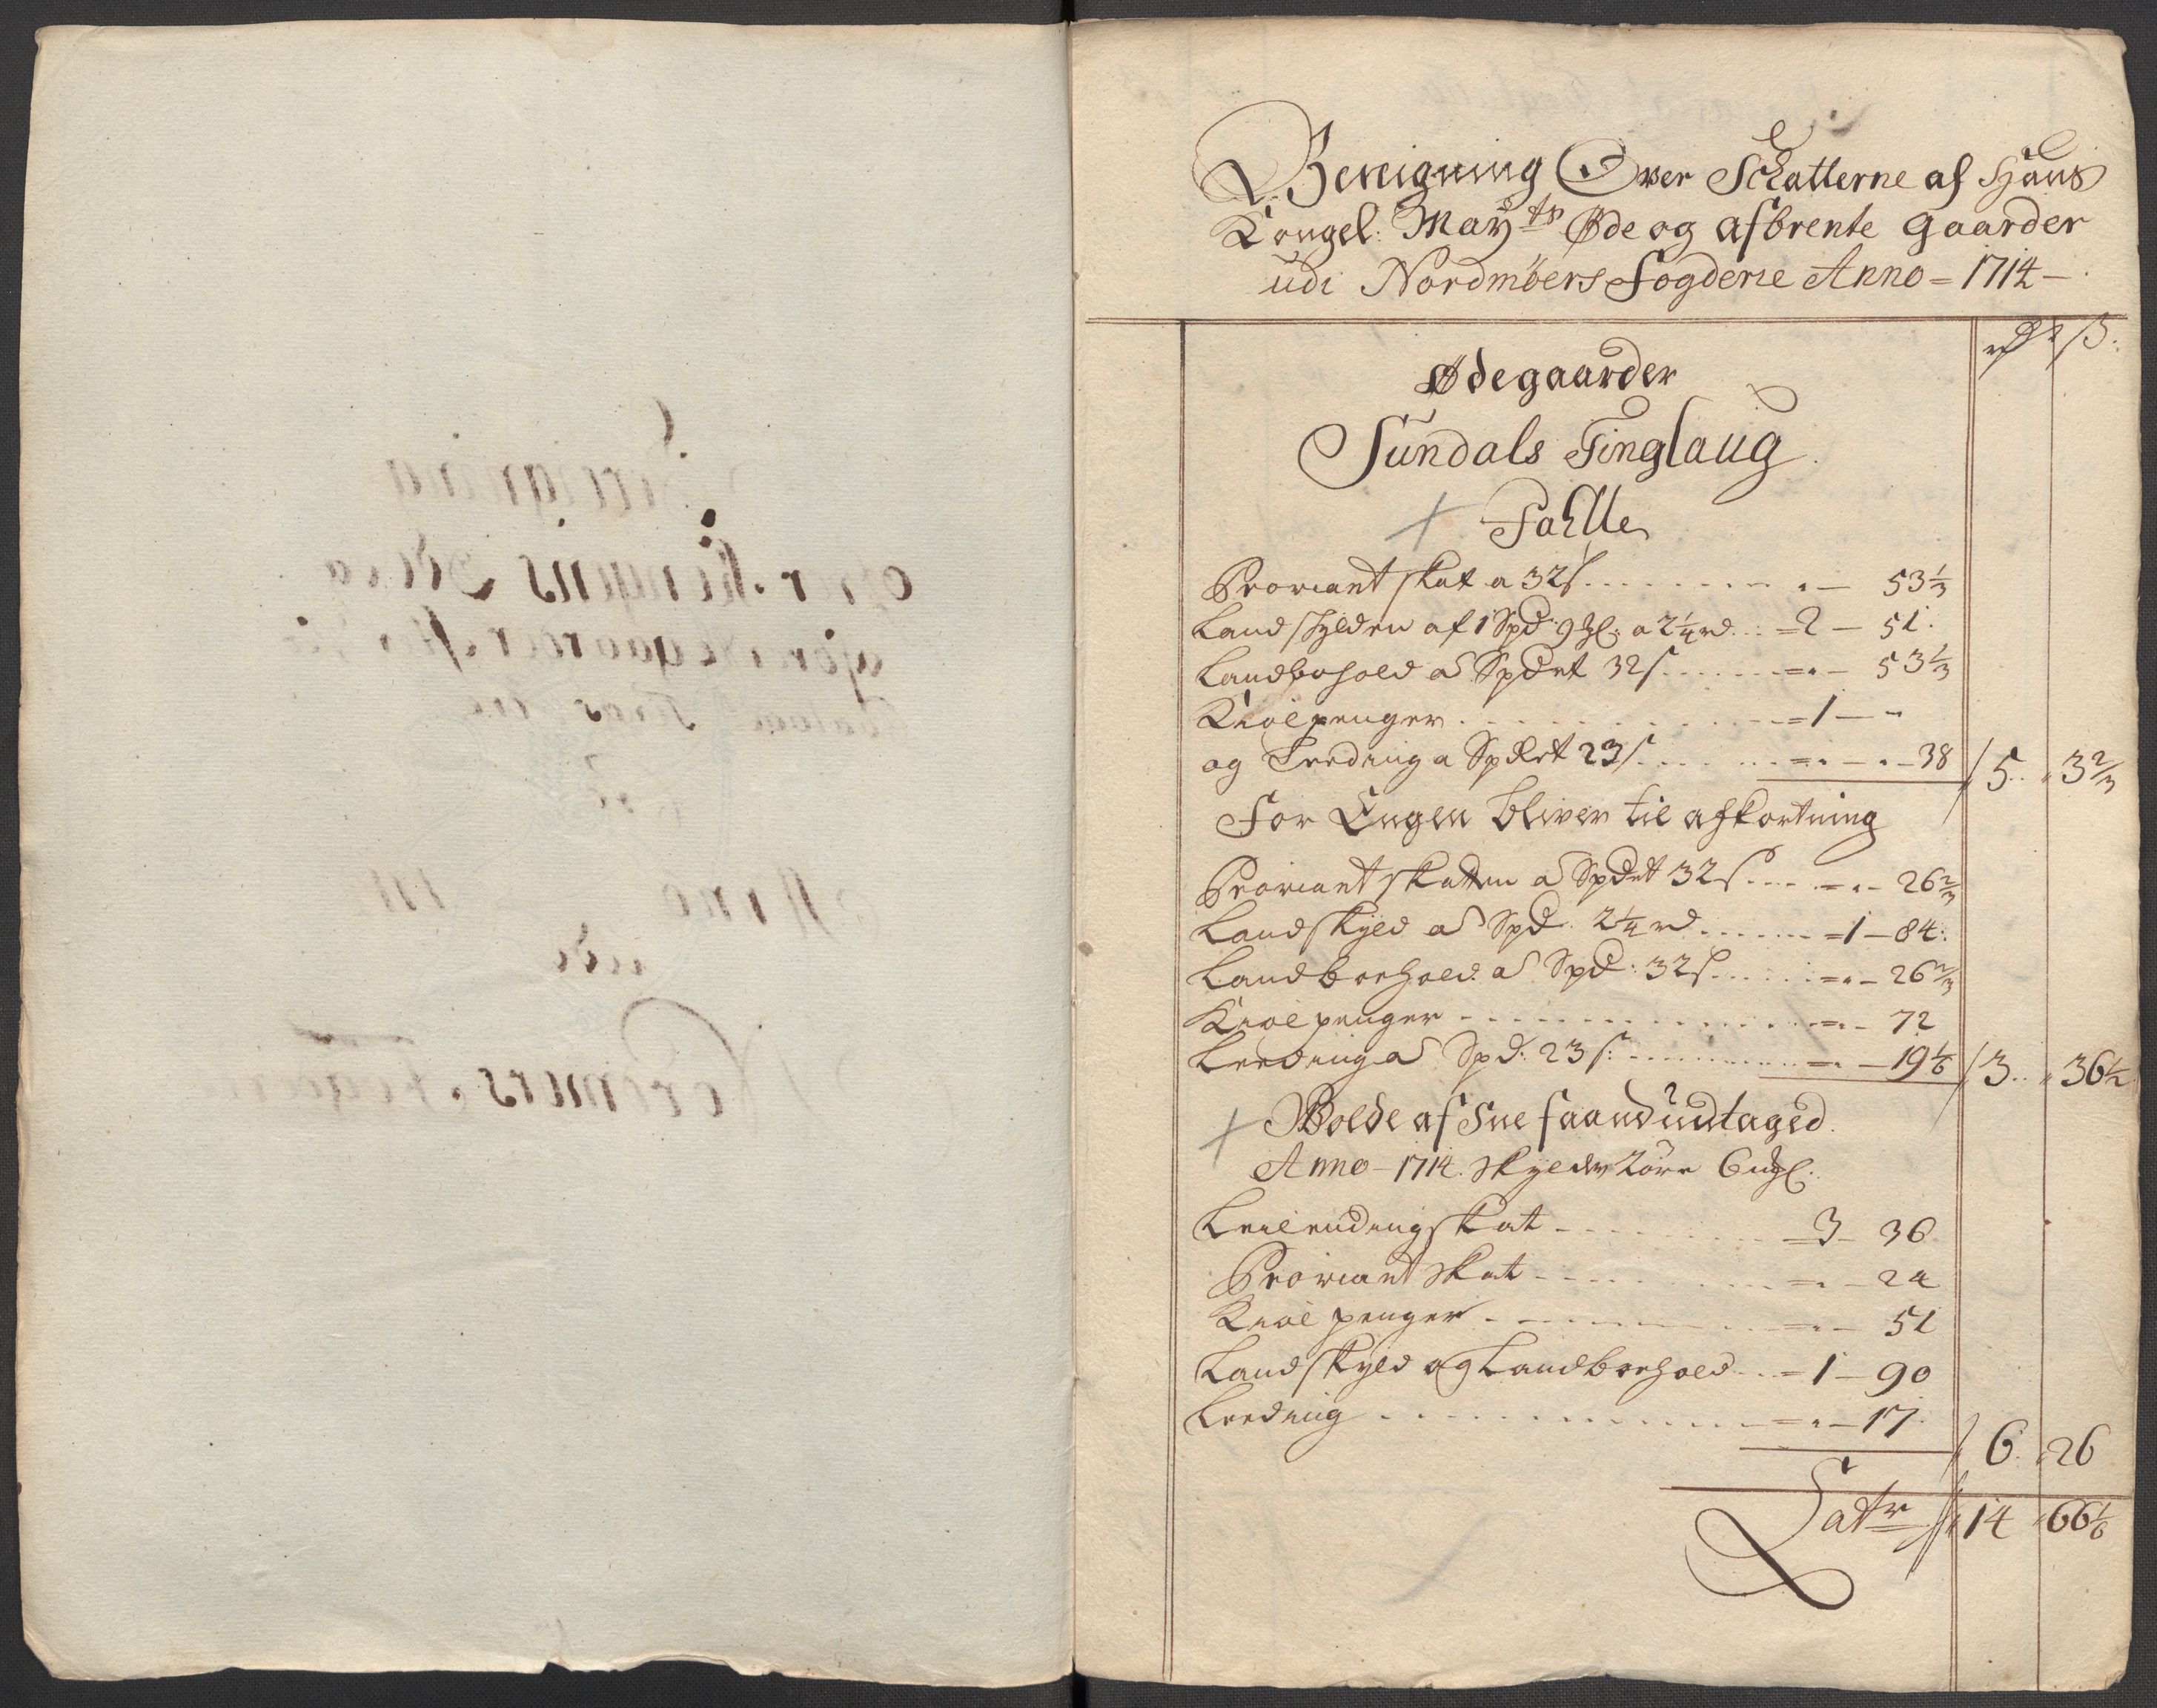 Bereigning Over Schatterne af Hans
Kongel: May.ts Øde og afbrente gaarder
udi Nordmøers Fogderie Anno = 1714 -
rd ß.
Ødegaarder
Sundals Tinglaug.
+ Fahlle
Proviant skat a 32 s. - 53 1/3
Landskylden af 1 Spd: 9 a 2 1/4 rd = 2 - 51.
Landbohold a Spdet 32 s = - 53 1/3
Kiølpenger = 1 - -
og Leeding a Spdet 23 s. = - - 38 / 5. 3 2/3
For Engen bliver til afkortning
Proviantskatten a Spdet 32 s = - 26 2/3
Landskyld a Spd. 2 1/4 rd = 1 - 84:
Landboehold a Spd: 32 s = - 26 2/3
Kiølpenger = - 72
Leeding a Spd: 23 s: = - 19 1/6 / 3. 36 1/2
+ Bolde af Sne faand udtaged.
Anno - 1714. skylder
Leilendingskat = 3 - 36
Proviant skat = - 24
Kiøl penger = - 51
Landskyld og Landboehold = 1 - 90
Leeding = - 17. / 6. 26
Latr // 14 66 1/6